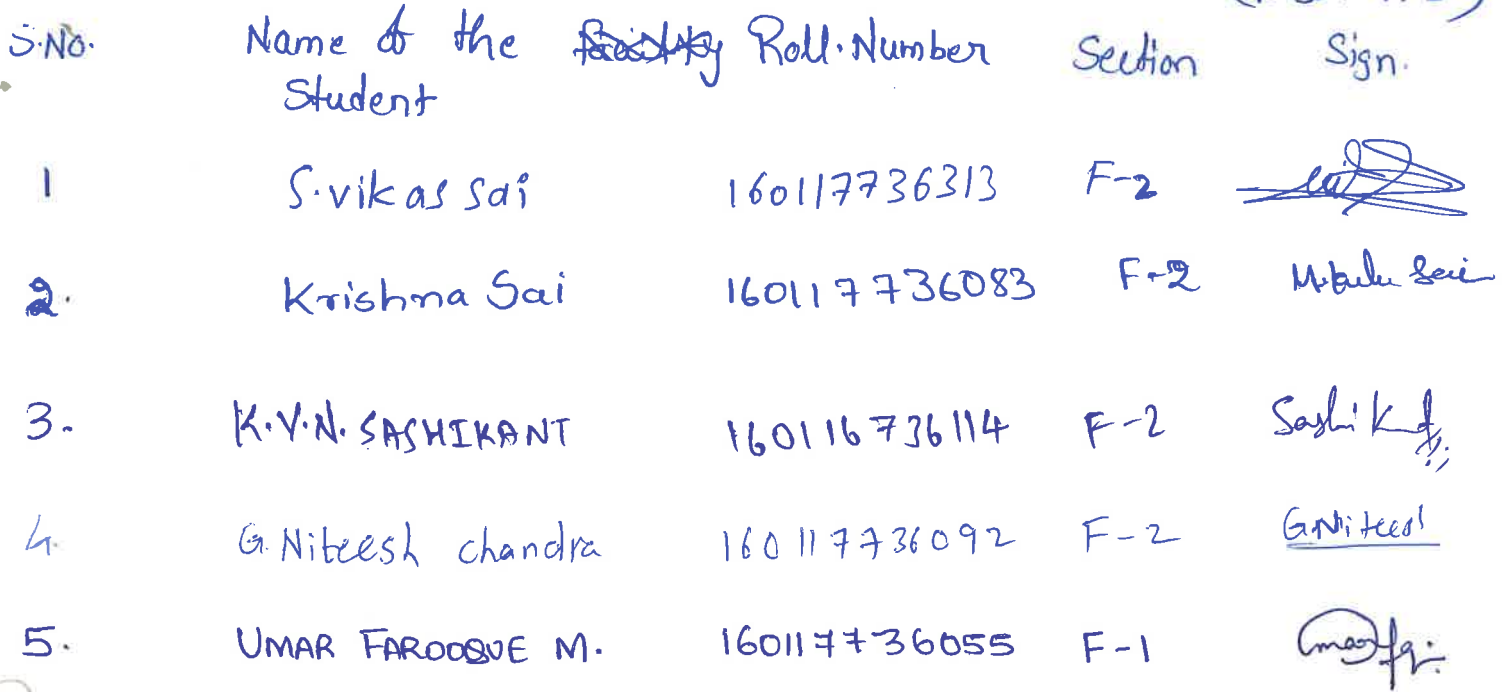 S.No. Name of the Roll.Number Section Sign.
Student
1 S.vikas sai 160117736313 F-2
2. Krishna Sai 160117736083 F-2 Sai
3. K.V.N. SASHIKANT 160116736114 F-2 Sashi K
4. G. Niteesh chandra 160117736092 F-2 G.Niteesh
5. UMAR FAROOQUE M. 160117736055 F-1